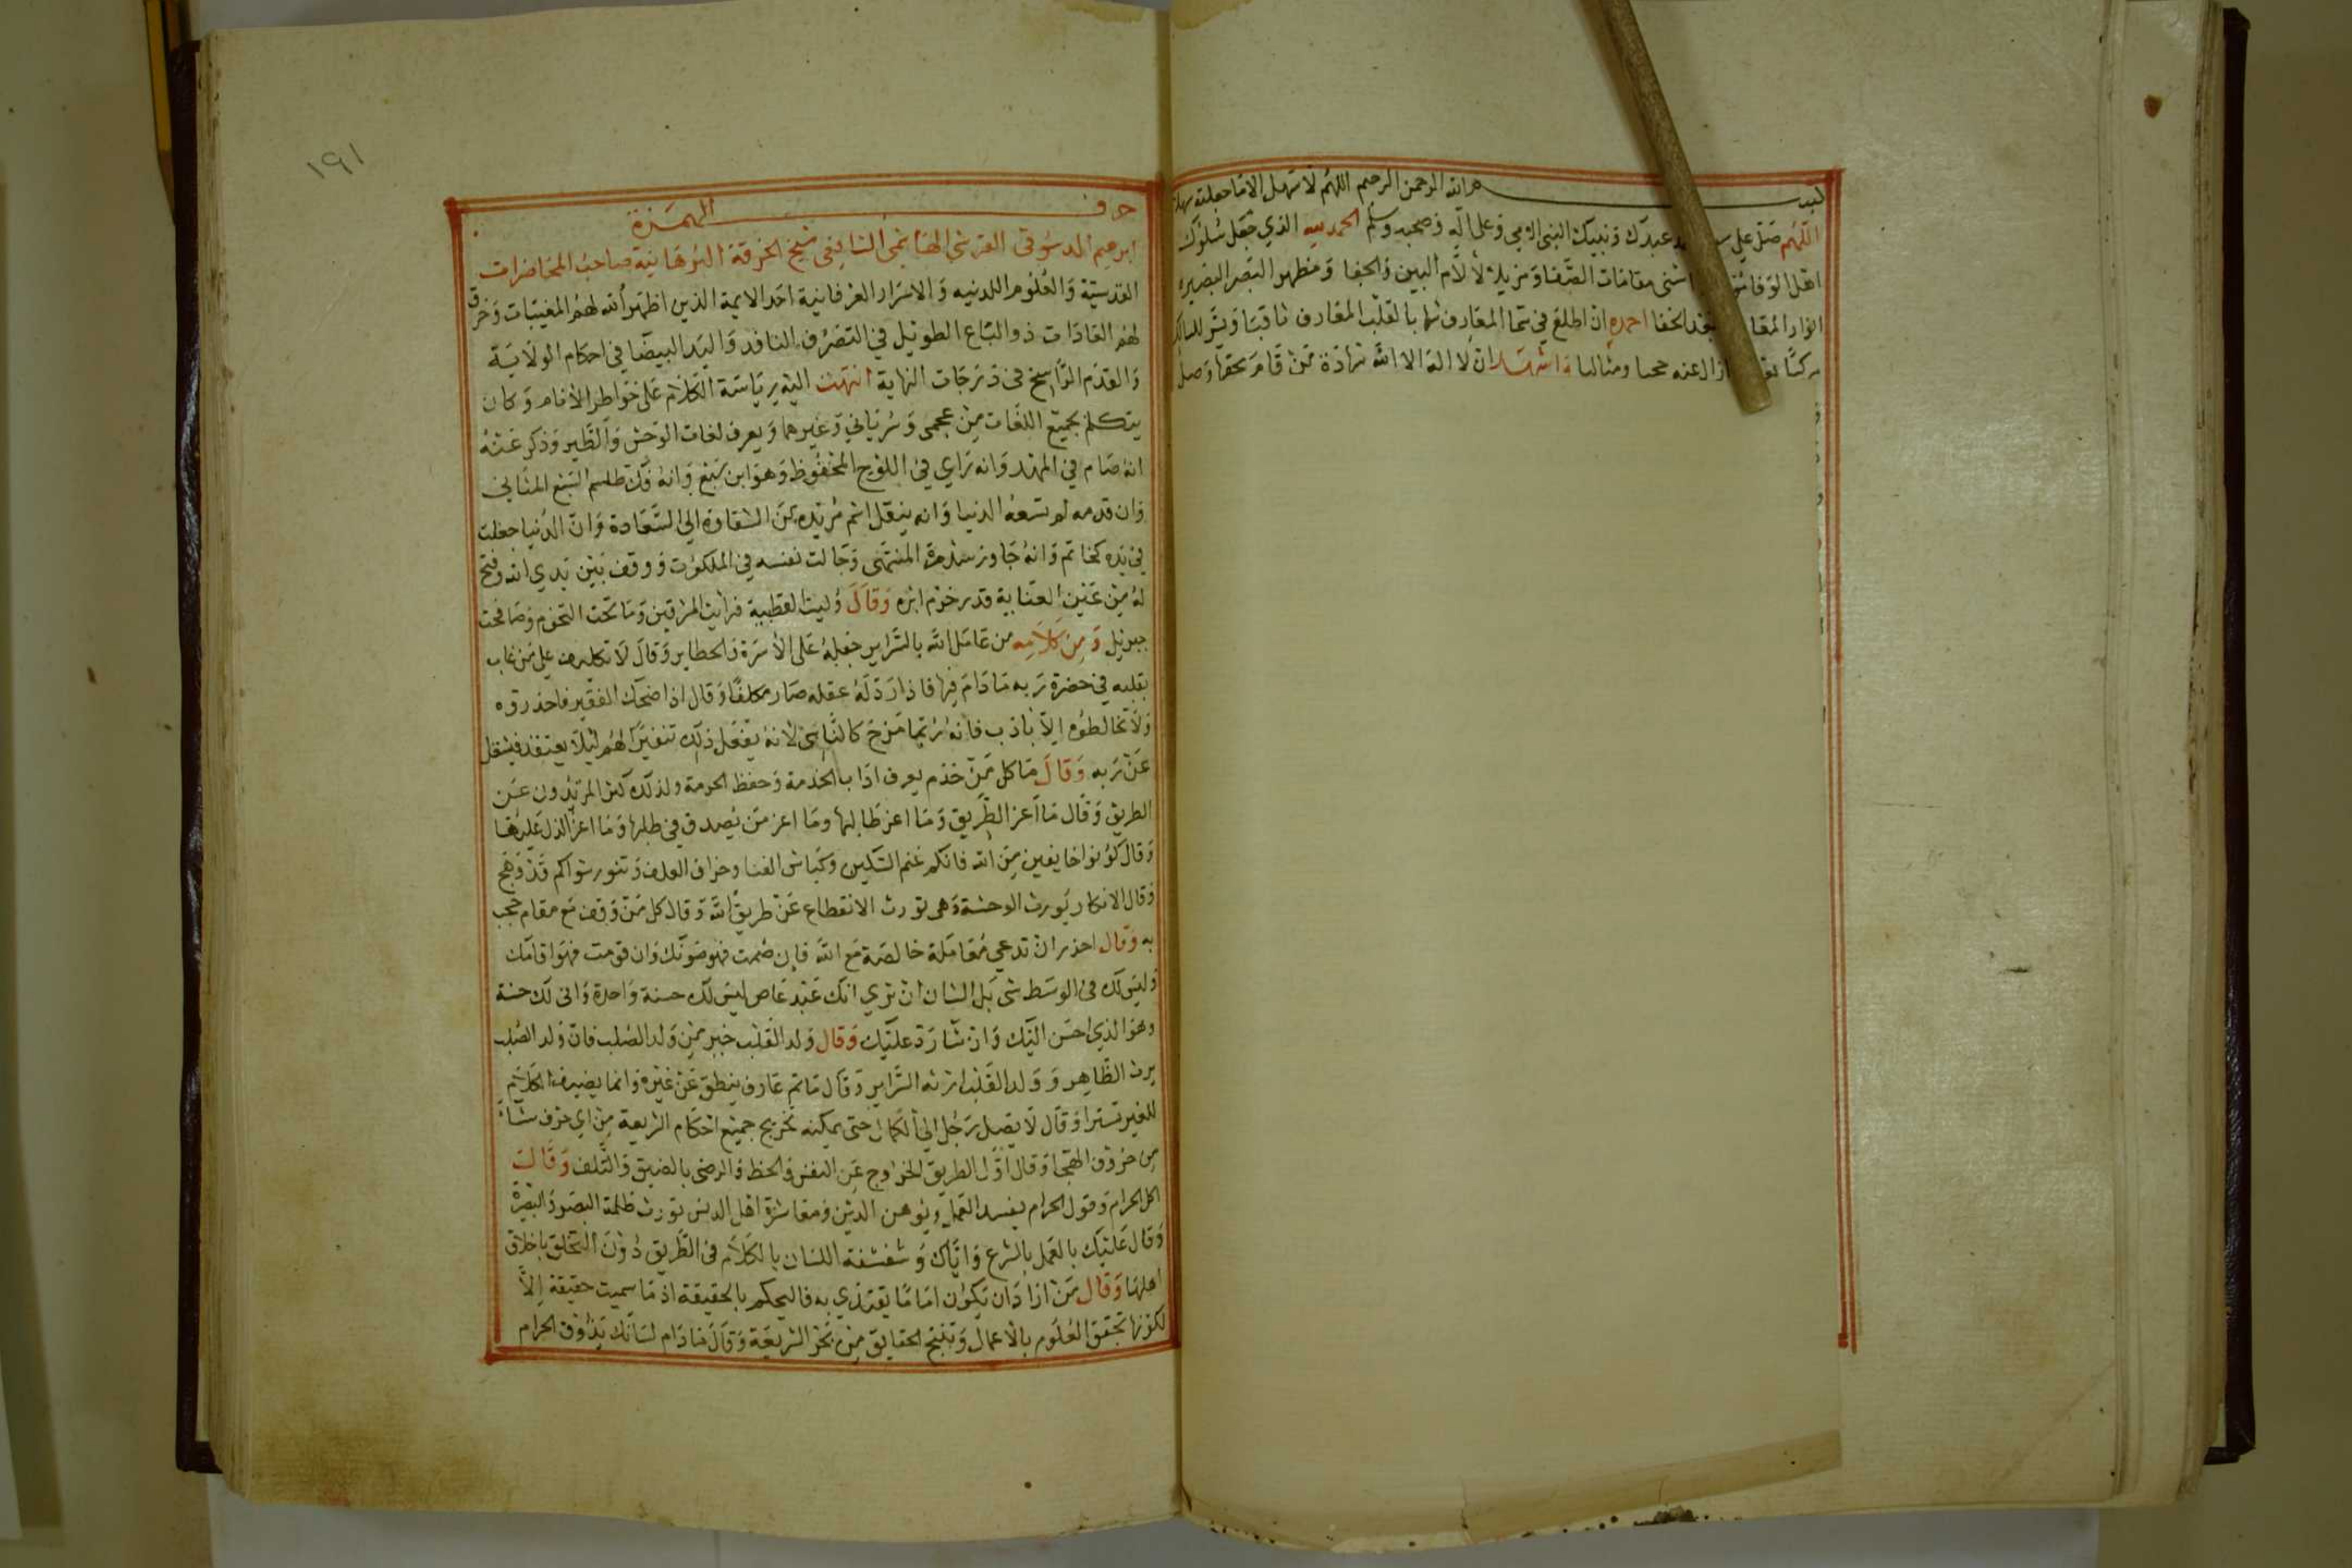 بسم الله الرحمن الرحيم اللهم لا سهل الا ما جعلته سهلا
اللهم صل على عبدك ونبيك النبي الامي وعلى اله وصحبه وسلم الحمد لله الذي جعل سلوك
اهل الوفا اسنى مقامات الصفا ومزيلا لألام البين والجفا ومظهر البصر البصيره
انوار بعد الخفا احمده ان اطلع في سما المعارف شها بالقلب المعارف ثاقبا ويسر للسالك
مركبا ازال عنه حجبا ومثالبا واشهد ان لا اله الا الله شهادة من قام بحقها وصل
١٩١
حرف الهمزة
ابرهيم الدسوقي القرشي الهاشمي الشافعي شيخ الخرقة البرهانية صاحب المحاضرات
القدسية والعلوم اللدنيه والاسرار العرفانية احد الايمة الذين اظهر الله لهم المغيبات وخرق
لهم العادات ذو الباع الطويل في التصرف النافد واليد البيضا في احكام الولاية
والقدم الراسخ في درجات النهاية انتهت اليه رياسة الكلام على خواطر الانام وكان
يتكلم بجميع اللغات من عجمي وسرياني وغيرهما ويعرف لغات الوحش والطير وذكر عنه
انه صام في المهد وانه راي في اللوح المحفوظ وهو ابن سبع وانه فك طلسم السبع المثاني
وان قدمه لم تسعه الدنيا وانه ينقل اسم مريده من الشقاوة الى السعادة وان الدنيا جعلت
في يده كخاتم وانه جاوز سدرة المنتهى وجالت نفسه في الملكوت ووقف بين يدي الله وفتح
له من عين العناية قدر خرم ابره وقال وليت القطبية فرايت المشرقين وما تحت التخوم وصافحت
جبريل ومن كلامه من عامل الله بالسراير جعله على الاسرة والحظاير وقال لا تكليف على من غاب
بقلبه في حضرة ربه ما دام فيها فاذا رد له عقله صار مكلفا وقال اذا ضحك الفقير فاحذروه
ولا تخالطوه الا بادب فانه ربما مزح كالناس لانه يفعل ذلك تنفيرا لهم ليلا يعتقد فيشغل
عن ربه وقال ما كل من خدم يعرف اداب الخدمة وحفظ الحرمة ولذلك كثر المرتدون عن
الطريق وقال ما اعز الطريق وما اعز طالبها وما اعز من يصدق في طلبها وما اعز الدال عليها
وقال كونوا خايفين من الله فانكم غنم السكين وكباش الفنا وخراف العلف وتنور شواكم قد وهج
وقال الانكار يورث الوحشة وهي تورث الانقطاع عن طريق الله وقال كل من وقف مع مقام حجب
به وقال احذر ان تدعي معاملة خالصة مع الله فان صمت فهو صومك وان قومت فهو اقامك
وليس لك في الوسط شي بل الشان ان تري انك عبد عاص ليس لك حسنة واحدة واني لك حسنة
وهو الذي احسن اليك وان شا رد عليك وقال ولد القلب خير من ولد الصلب فان ولد الصلب
يرث الظاهر وولد القلب ارثه السراير وقال ما تم عارف ينطق عن غيره وانما يضيف الكلام
للغير تسترا وقال لا يصل رجل الى الكمال حتى يمكنه تخريج جميع احكام الشريعة من اي حرف شاء
من حروف الهجا وقال اول الطريق الخروج عن النفس والحظ والرضى بالضيق والتلف وقالت
اكل الحرام وقول الحرام يفسد العمل ويوهن الدين ومعاشرة اهل الدنس تورث ظلمة البصر والبصيرة
وقال عليك بالعمل بالشرع واياك وشقشقة اللسان بالكلام في الطريق دون التخلق باخلاق
اهلها وقال من اراد ان يكون اماما يقتدي به فاليحكم بالحقيقة اذ ما سميت حقيقة الا
لكونها تحقق العلوم بالاعمال وتنتج الحقايق من بحر الشريعة وقال ما دام لسانك يذوق الحرام